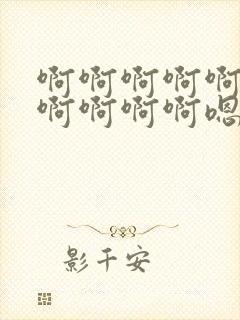 啊啊啊啊啊
啊啊啊啊嗯
影千安